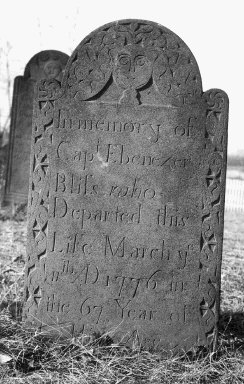 In memory of
Capt Ebenezer
Bliss who
Departed this
Life March ye
AD 1776 in
the 67 Year of